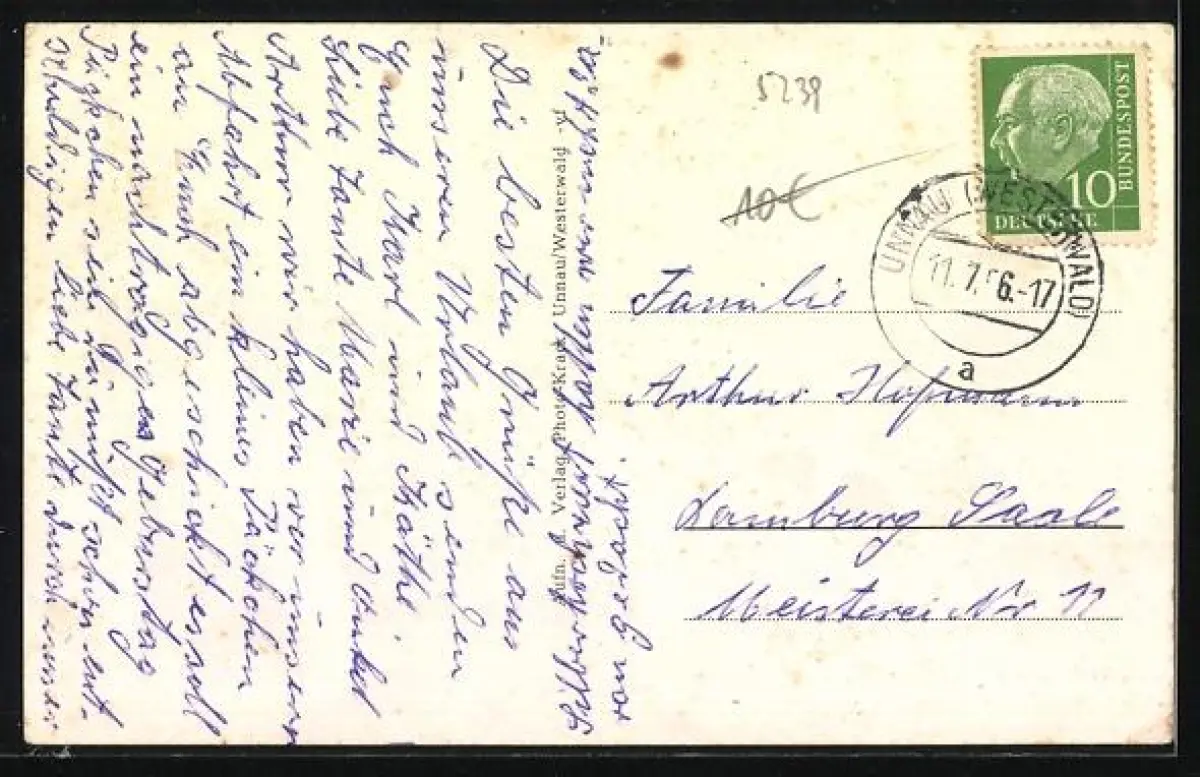 Die besten Grüße aus
unserem Urlaub senden
Euch Karl und Käthe
Liebe Tante Marie und Onkel
Arthur wir haben vor unserer
Abfahrt ein kleines Päckchen
an Euch abgeschickt es soll
ein nachträgiges Geburtstag
Päckchen sein Du mußt schon ent-
schuldigen liebe Tante durch unser
das Hemmern
war gedacht.
Aufn. u. Verlag Photo-Krapf Unnau/Westerwald
5239
10€
BUNDESPOST
10
DEUTSCHE
UNNAU (WESTERWALD)
11.7.56.-17
a
Familie
Arthur Hofmann
Camburg Saale
Meisterei Nr 11